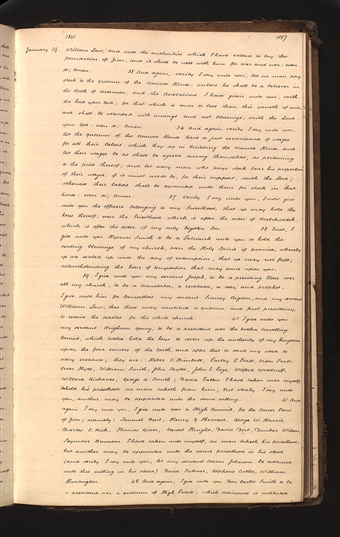 1841 1187
January 19 William Law, and unto the authorities which I have called to lay the
foundation of Zion, and it shall be well with him for ever and ever: even
so, Amen. 35 And again, verily I say unto you, let no man pay
stock to the quorum of the Nauvoo House, unless he shall be a believer in
the Book of Mormon, and the Revelations I have given unto you, saith
the Lord your God; for that which is more or less than this cometh of evil,
and shall be attended with cursings and not blessings, saith the Lord
your God: even so: Amen. 36 And again, verily I say unto you,
let the quorum of the Nauvoo House have a just recompense of wages
for all their labors which they do in building the Nauvoo House, and
let their wages be as shall be agreed among themselves, as pertaining
to the price thereof; and let every man who pays stock bear his proportion
of their wages, if it must needs be, for their support, saith the Lord;
otherwise their labors shall be accounted unto them for stock in that
house: even so; Amen. 37 Verily I say unto you, I now give
unto you the officers belonging to my Priesthood, that ye may hold the
keys thereof, even the Priesthood which is after the order of Melchisedek,
which is after the order of my only begotten Son. 38 First, I
give unto you Hyrum Smith to be a Patriarch unto you to hold the
sealing blessings of my church, even the Holy Spirit of promise, whereby
ye are sealed up unto the day of redemption, that ye may not fall;
notwithstanding the hour of temptation that may come upon you.
39 I give unto you my servant Joseph, to be a presiding Elder over
all my church, to be a translator, a revelator, a seer, and prophet.
I give unto him for Counsellors my servant Sidney Rigdon, and my servant
William Law, that these may constitute a quorum and first presidency,
to receive the oracles for the whole church. 40 I give unto you
my servant Brigham Young, to be a president over the twelve travelling
Council, which twelve hold the keys to open up the authority of my kingdom
upon the four corners of the Earth, and after that to send my word to
every creature; they are: Heber C. Kimball, Parley P. Pratt, Orson Pratt,
Orson Hyde, William Smith, John Taylor, John E. Page, Wilford Woodruff,
Willard Richards, George A. Smith; David Patten I have taken unto myself,
behold his priesthood no man taketh from him; but verily I say unto
you, another may be appointed unto the same calling. 41 And
again I say unto you, I give unto you a High Council, for the Corner Stone
of Zion; namely: Samuel Bent, Henry G. Sherwood, George W. Harris,
Charles C. Rich, Thomas Grover, Newel Knight, David Dort, Dunbar Wilson,
Seymour Brunson I have taken unto myself, no man taketh his priesthood,
but another may be appointed unto the same priesthood in his stead
(and verily I say unto you, let my servant Aaron Johnson be ordained
unto this calling in his stead) David Fulmer, Alpheus Cutler, William
Huntington. 42 And again, I give unto you Don Carlos Smith to be
a president over a quorum of High Priests, which ordinance is instituted